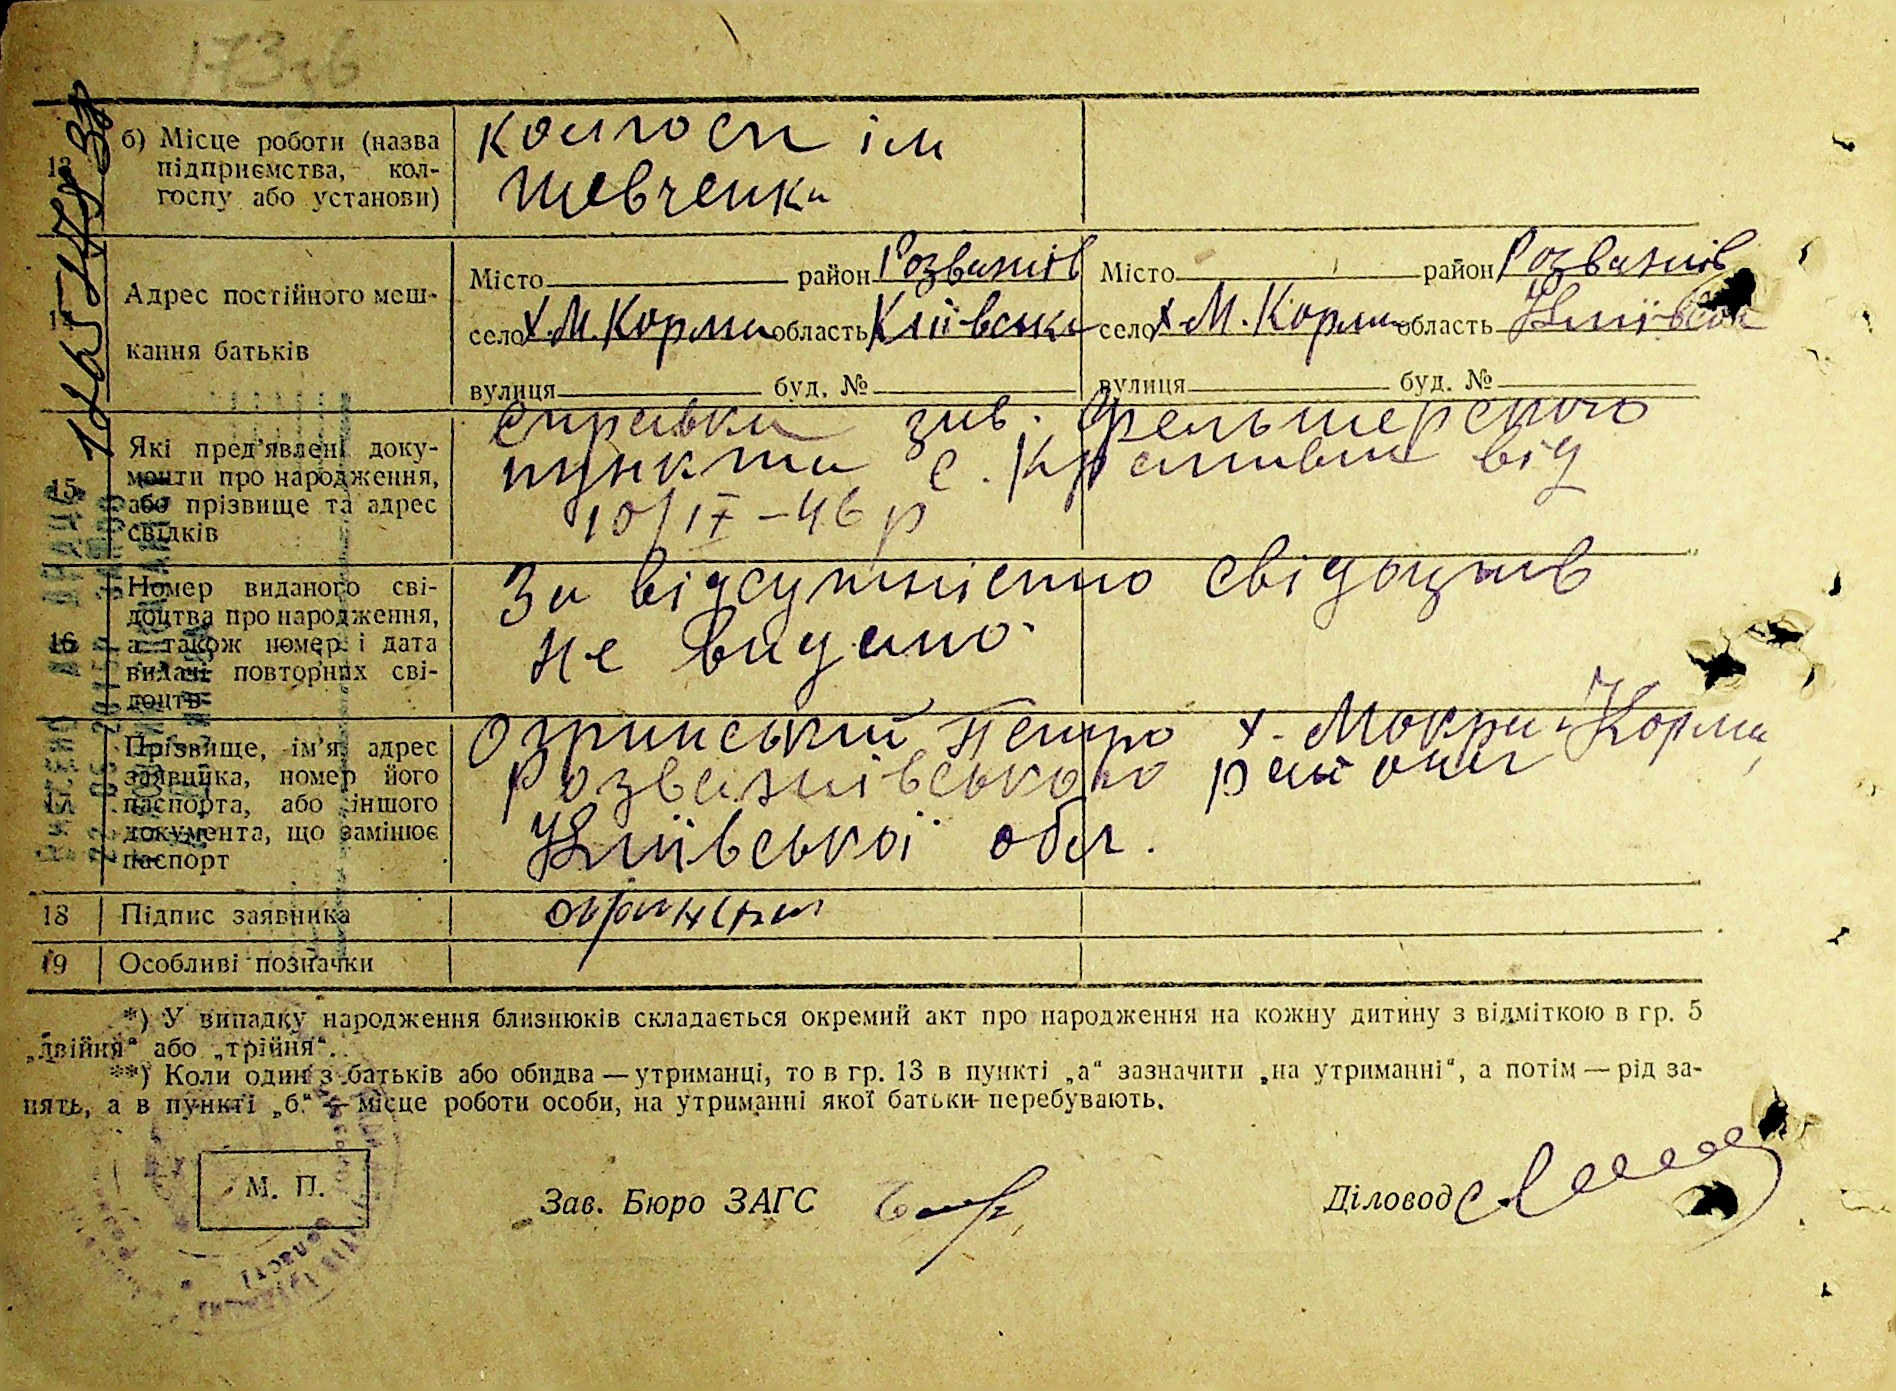 173
13 б) Місце роботи (назва підприємства, колгоспу або установи)
колгосп ім
Шевченка
14 Адрес постійного меш-
кання батьків
Місто район Розважів Місто район Розважів
село х. М. Корма область Київська село х. М. Корма область Київськ
вулиця буд. № вулиця буд. №
15 Які пред'явлені доку-
менти про народження,
або прізвище та адрес
свідків
Справка зав. Фельшерского
пункта с. Кропивня від
10/IX-46 р
16 Номер виданого сві-
доцтва про народження,
а також номер і дата
видачі повторних сві-
доцтв
За відсутністю свідоцтв
не видано.
17 Прізвище, ім'я, адрес
заявника, номер його
паспорта, або іншого
документа, що замінює
паспорт
Петро х. Мокра-Корма,
Розважівського району
Київської обл.
18 Підпис заявника
19 Особливі позначки
*) У випадку народження близнюків складається окремий акт про народження на кожну дитину з відміткою в гр. 5
„двійня“ або „трійня“.
**) Коли один з батьків або обидва — утриманці, то в гр. 13 в пункті „а“ зазначити „на утриманні“, а потім — рід за-
нять, а в пункті „б“ — місце роботи особи, на утриманні якої батьки перебувають.
М. П.
Зав. Бюро ЗАГС
Діловод